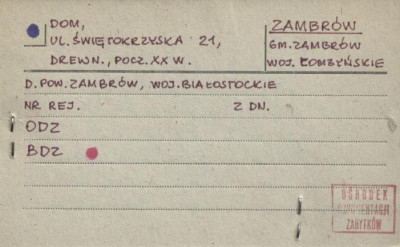 DOM,
UL. ŚWIĘTOKRZYSKA 21,
DREWN., POCZ. XX W.
ZAMBRÓW
GM. ZAMBRÓW
WOJ. ŁOMŻYŃSKIE
D. POW. ZAMBRÓW, WOJ. BIAŁOSTOCKIE
NR REJ. Z DN.
ODZ
BDZ
OŚRODEK
DOKUMENTACJI
ZABYTKÓW